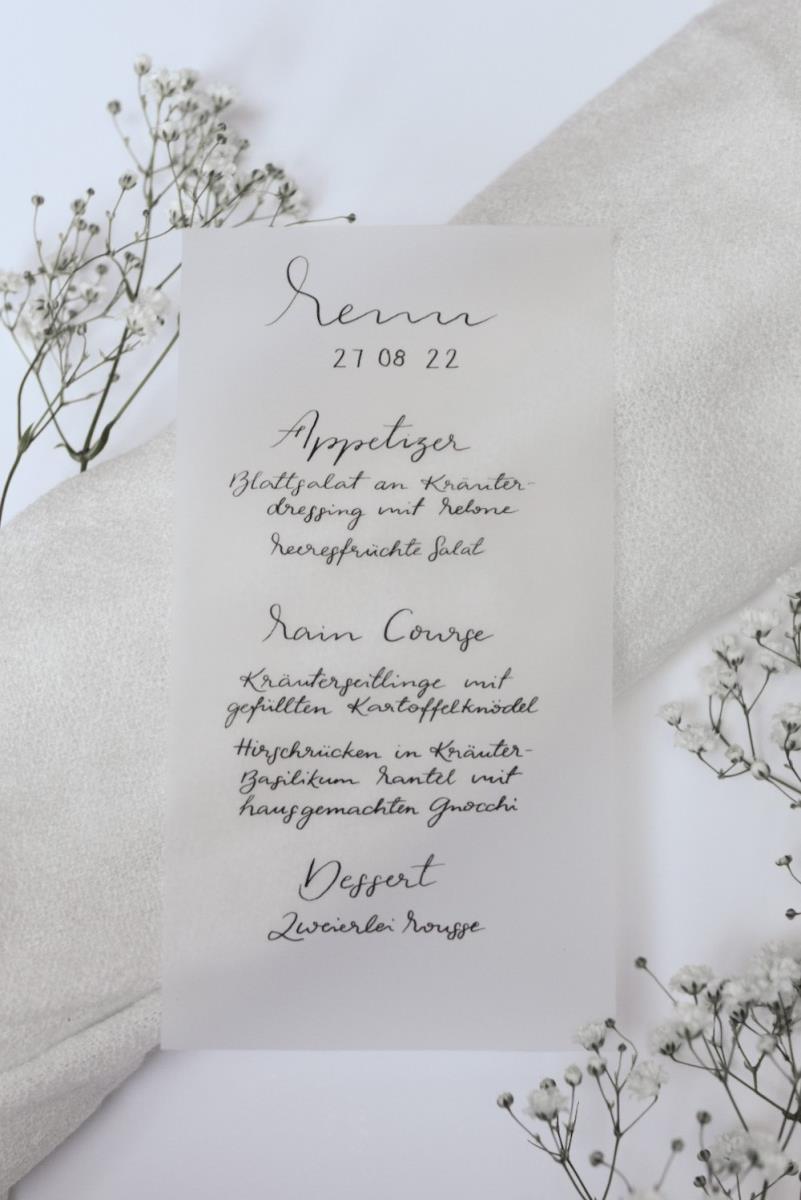 Menu
27 08 22
Appetizer
Blattsalat an Kräuter-
dressing mit Melone
Meeresfrüchte Salat
Main Course
Kräuterseitlinge mit
gefüllten Kartoffelknödel
Hirschrücken in Kräuter-
Basilikum Mantel mit
hausgemachten Gnocchi
Dessert
Zweierlei Mousse